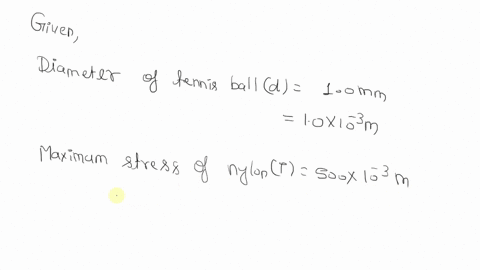 Given,
Diameter of tennis ball(d) = 1.0mm
= 1.0×10⁻³m
Maximum stress of nylon(T) = 500×10⁻³ m